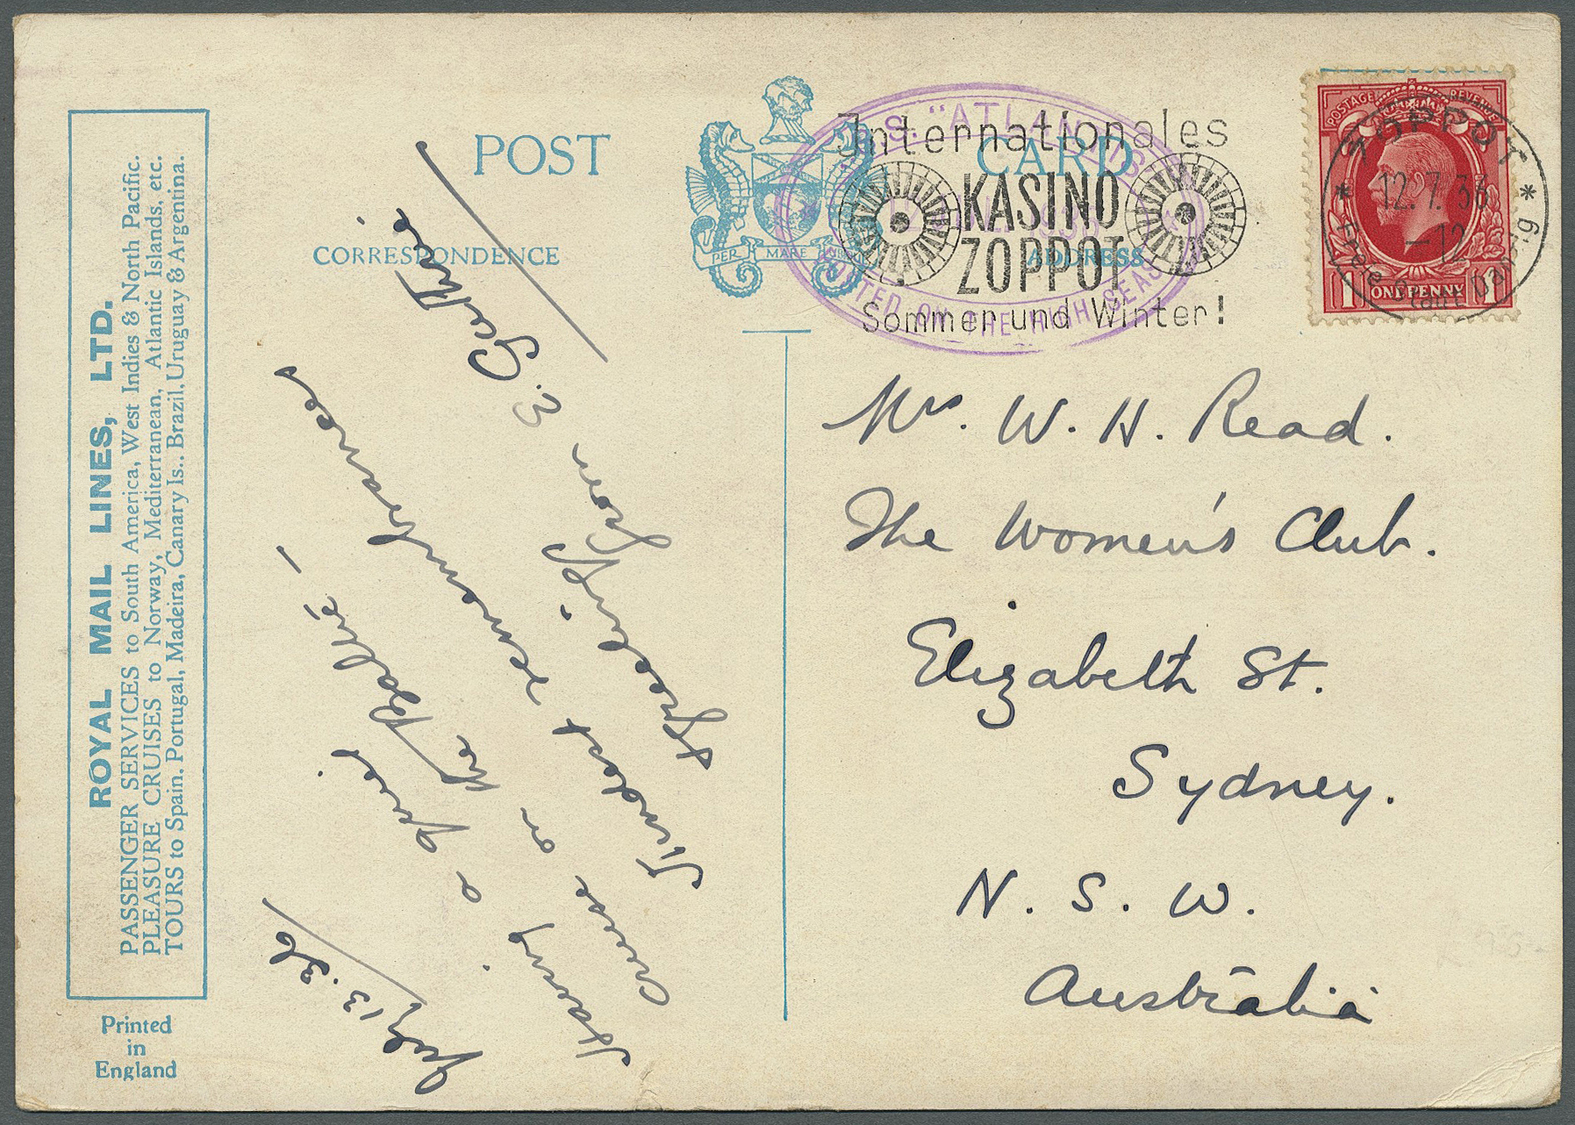 ROYAL MAIL LINES, LTD.
PASSENGER SERVICES to South America, West Indies & North Pacific.
PLEASURE CRUISES to Norway, Mediterranean, Atlantic Islands, etc.
TOURS to Spain, Portugal, Madeira, Canary Is., Brazil, Uruguay & Argentina.
Printed
in
England
POST CARD
CORRESPONDENCE
ADDRESS
PER MARE
July 13. 36
Having a quiet
cruise on the Baltic –
Kindest remembrances
& Greetings from
E. Guthrie
S. "ATLANTIS"
POSTED ON THE HIGH SEAS
Internationales
KASINO
ZOPPOT
Sommer und Winter!
POSTAGE REVENUE
1 ONE PENNY 1
ZOPPOT
12.7.36
–12
* Freie Stadt Danzig *
Mrs. W. H. Read.
The Women's Club.
Elizabeth St.
Sydney.
N. S. W.
Australia